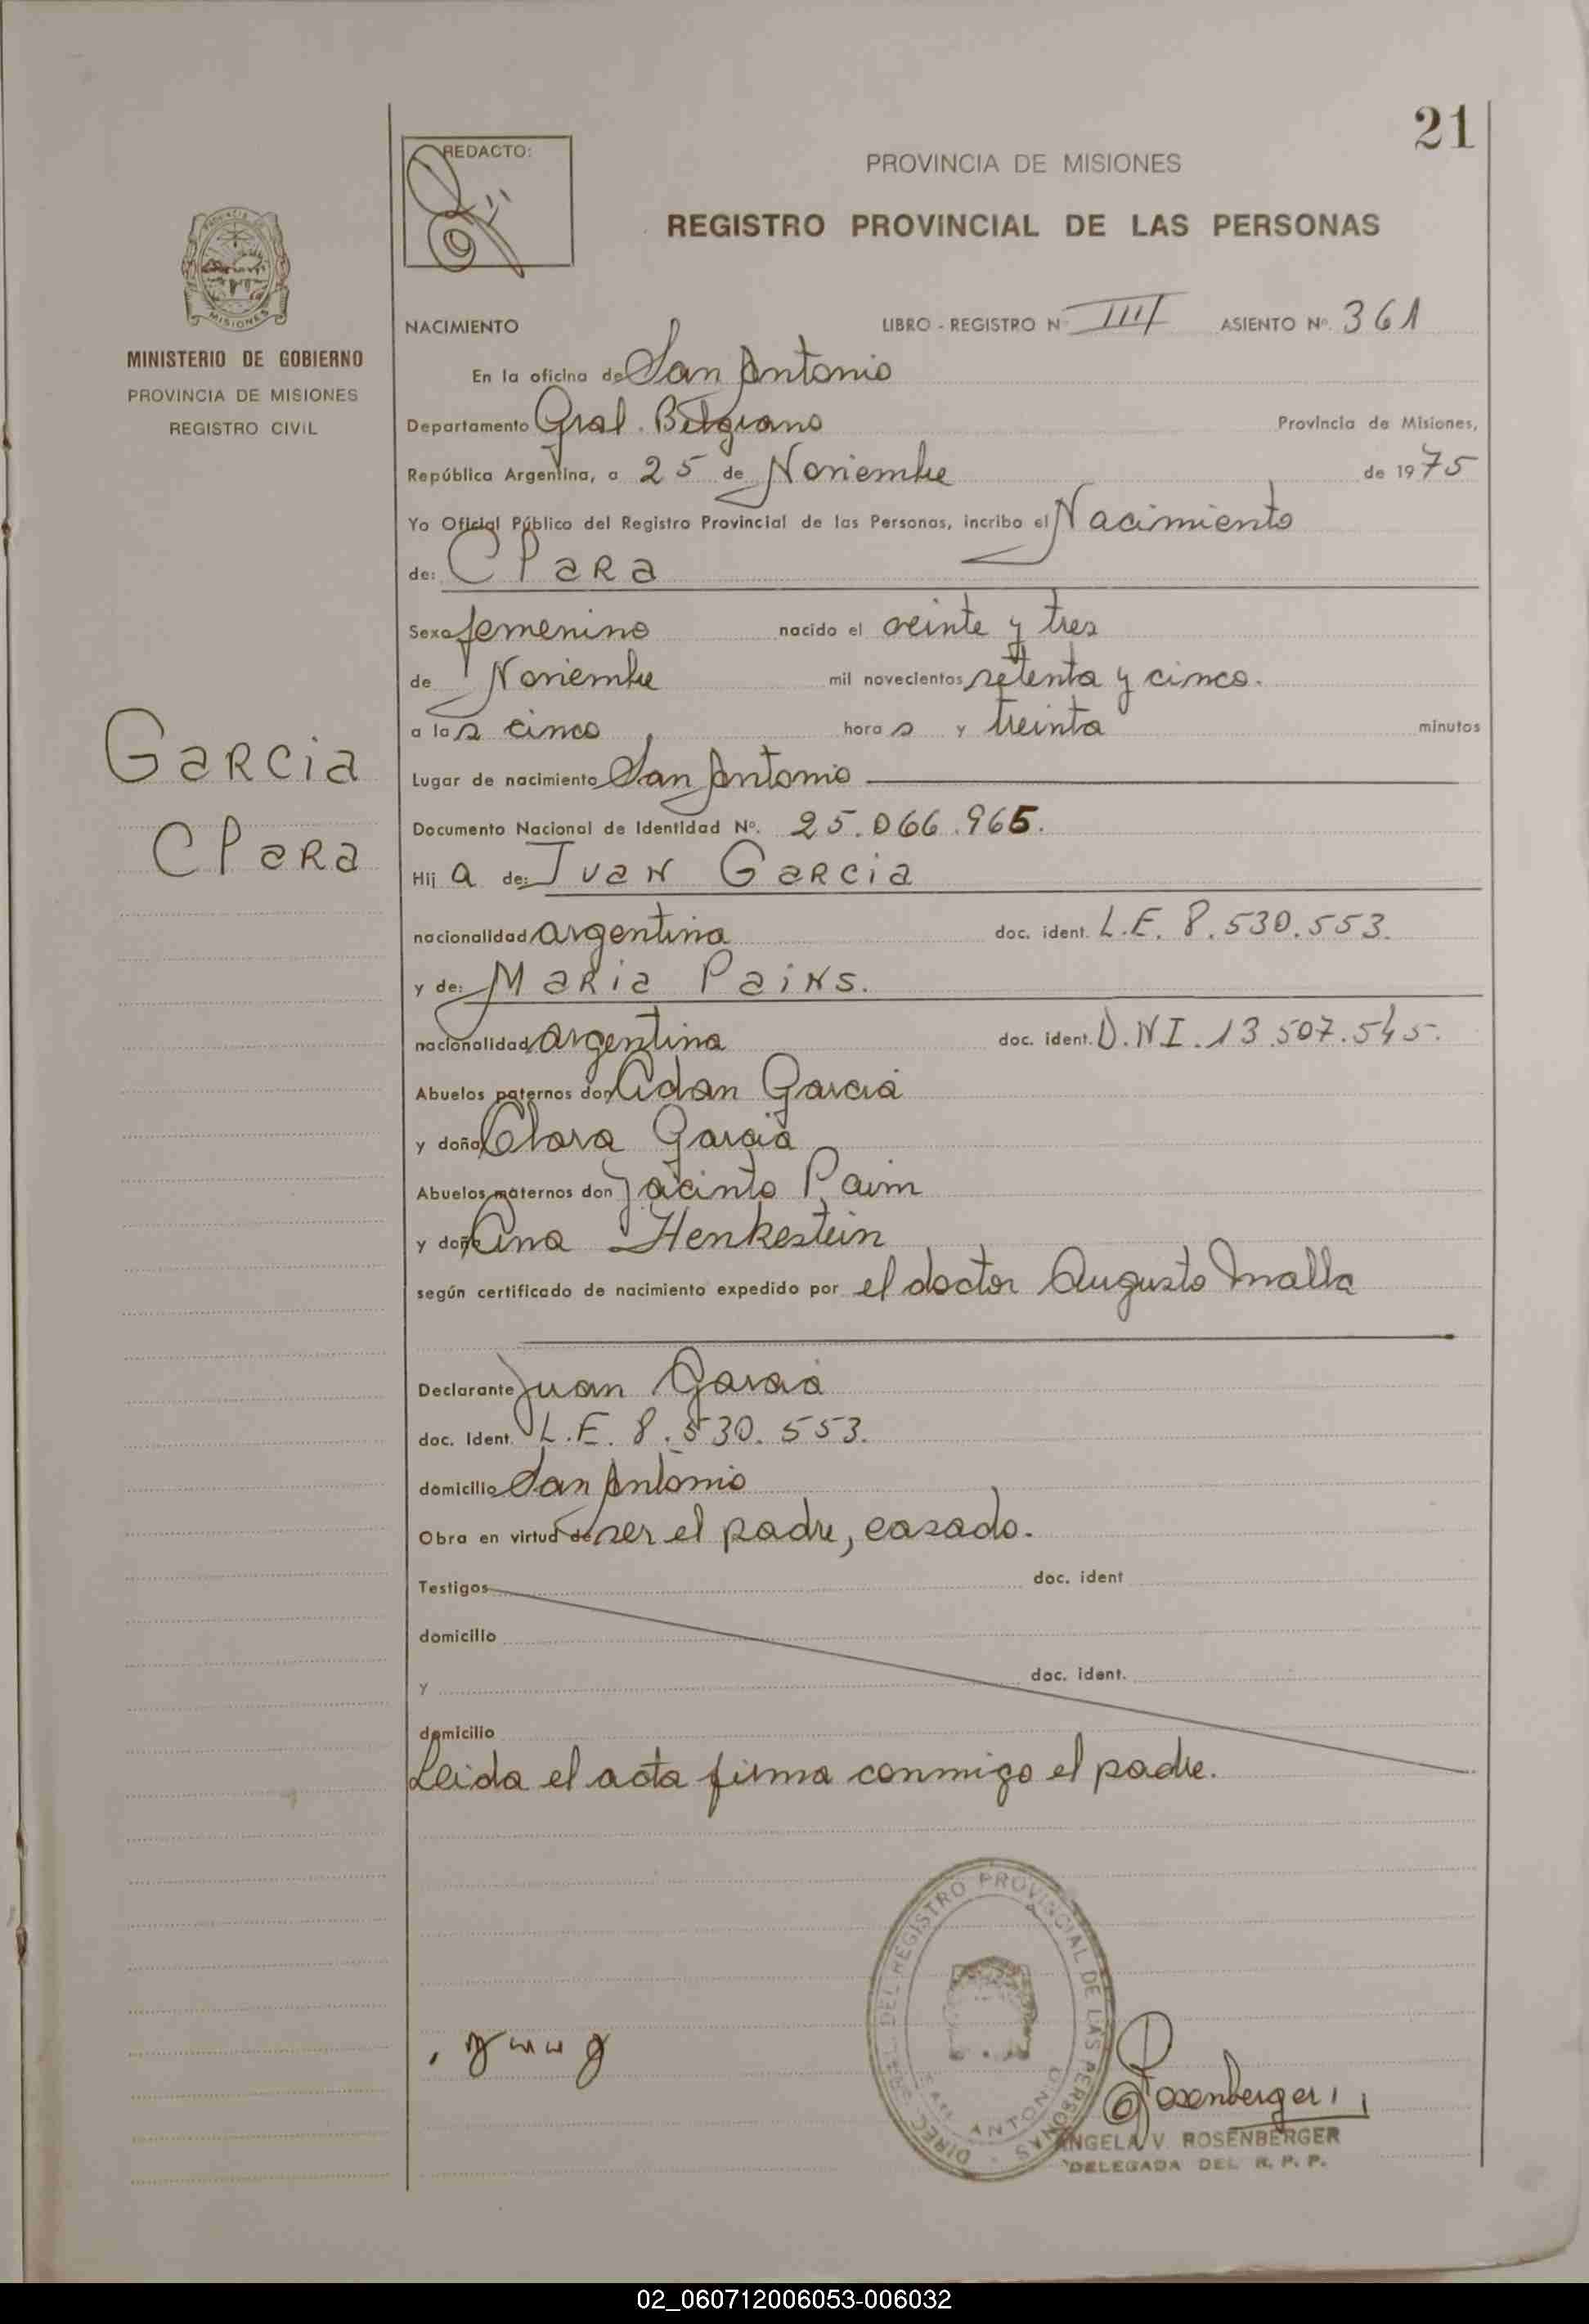 21
REDACTO:
PROVINCIA DE MISIONES
REGISTRO PROVINCIAL DE LAS PERSONAS
MISIONES
MINISTERIO DE GOBIERNO
PROVINCIA DE MISIONES
REGISTRO CIVIL
NACIMIENTO LIBRO - REGISTRO Nº III ASIENTO Nº. 361
En la oficina de San Antonio
Departamento Gral. Belgrano Provincia de Misiones,
República Argentina, a 25 de Noviembre de 1975
Yo Oficial Público del Registro Provincial de las Personas, incribo el Nacimiento
de: Clara
Sexo femenino nacido el veinte y tres
de Noviembre mil novecientos setenta y cinco.
a las cinco horas y treinta minutos
Garcia
Clara
Lugar de nacimiento San Antonio
Documento Nacional de Identidad Nº. 25.066.965.
Hija de: Juan Garcia
nacionalidad argentina doc. ident. L.E. 8.530.553.
y de: Maria Pains.
nacionalidad argentina doc. ident. D.N.I. 13.507.545.
Abuelos paternos don Adan Garcia
y doña Clara Garcia
Abuelos maternos don Jacinto Paim
y doña Ana Henkestein
según certificado de nacimiento expedido por el doctor Augusto Malla
Declarante Juan Garcia
doc. Ident. L.E. 8.530.553.
domicilio San Antonio
Obra en virtud de ser el padre, casado.
Testigos doc. ident
domicilio
y doc. ident.
domicilio
Leida el acta firma conmigo el padre.
DIREC. GRAL. DEL REGISTRO PROVINCIAL DE LAS PERSONAS
SAN ANTONIO
Rosenberger
ANGELA V. ROSENBERGER
DELEGADA DEL R. P. P.
02_060712006053-006032